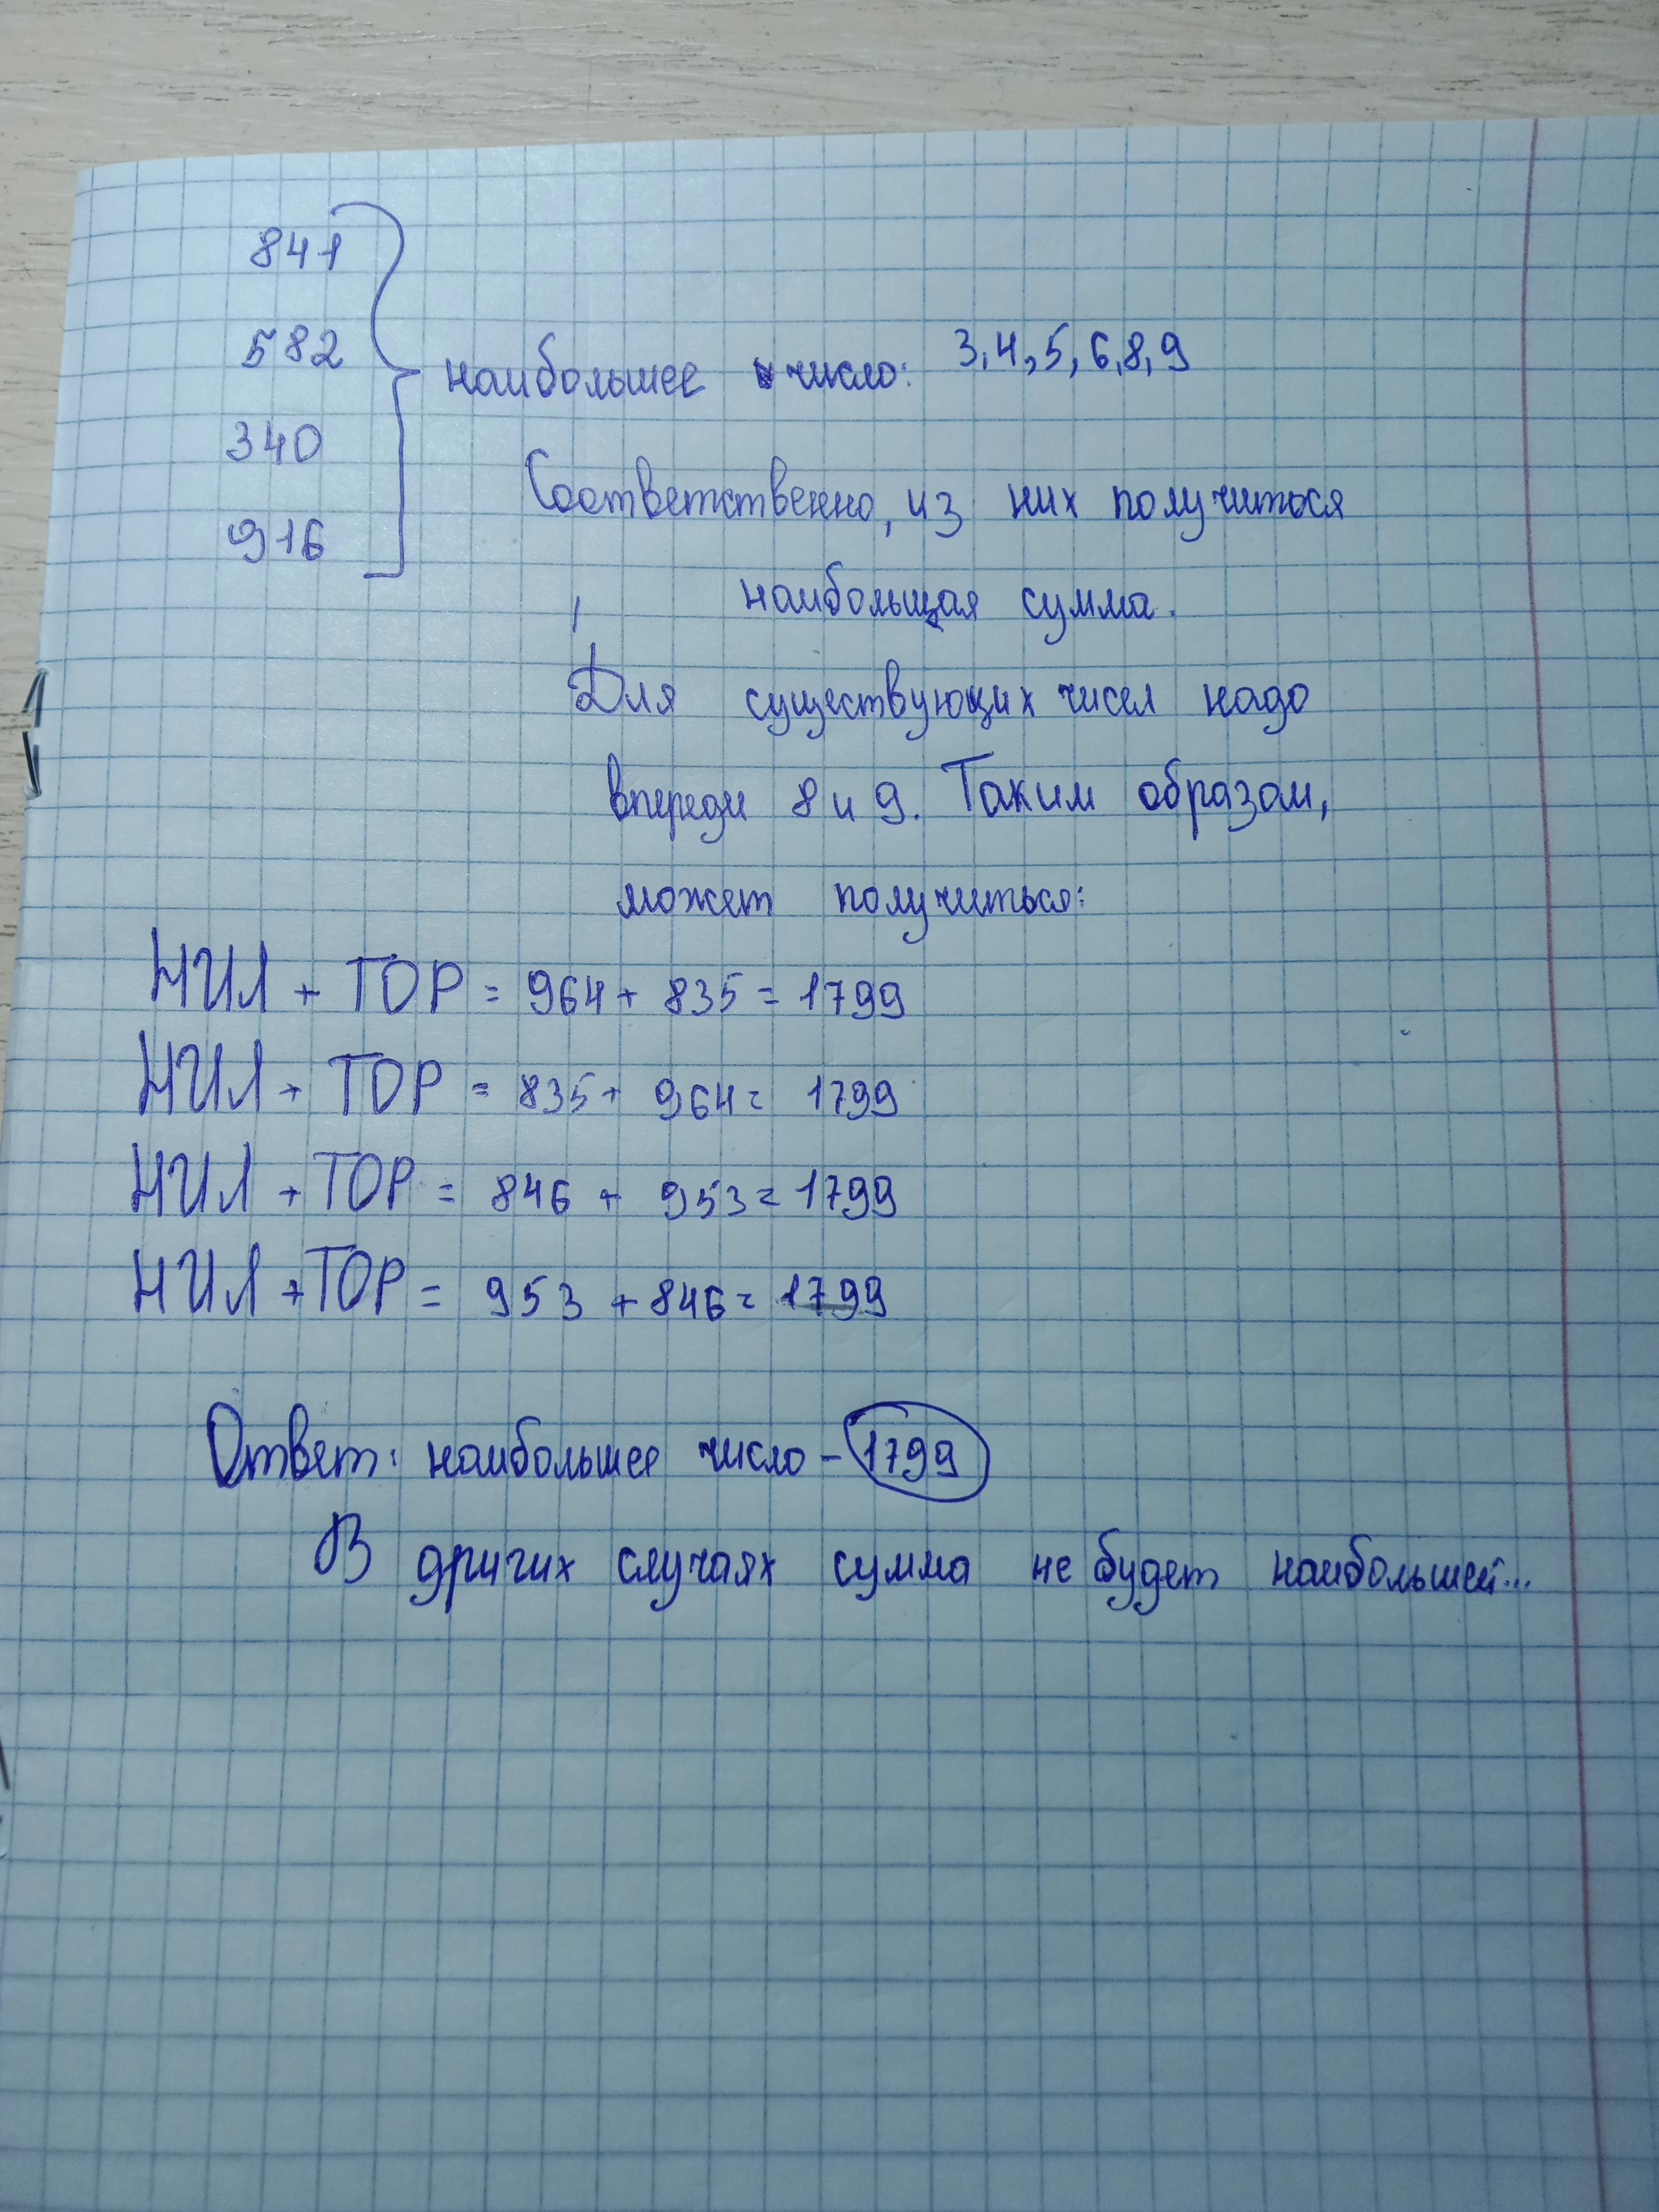 841
582
340
916
наибольшее число: 3,4,5,6,8,9
Соответственно, из них получиться
наибольшая сумма.
Для существующих чисел надо
впереди 8 и 9. Таким образом,
может получиться:
НИЛ + ТОР = 964 + 835 = 1799
НИЛ + ТОР = 835 + 964 = 1799
НИЛ + ТОР = 846 + 953 = 1799
НИЛ + ТОР = 953 + 846 = 1799
Ответ: наибольшее число - 1799
В других случаях сумма не будет наибольшей...